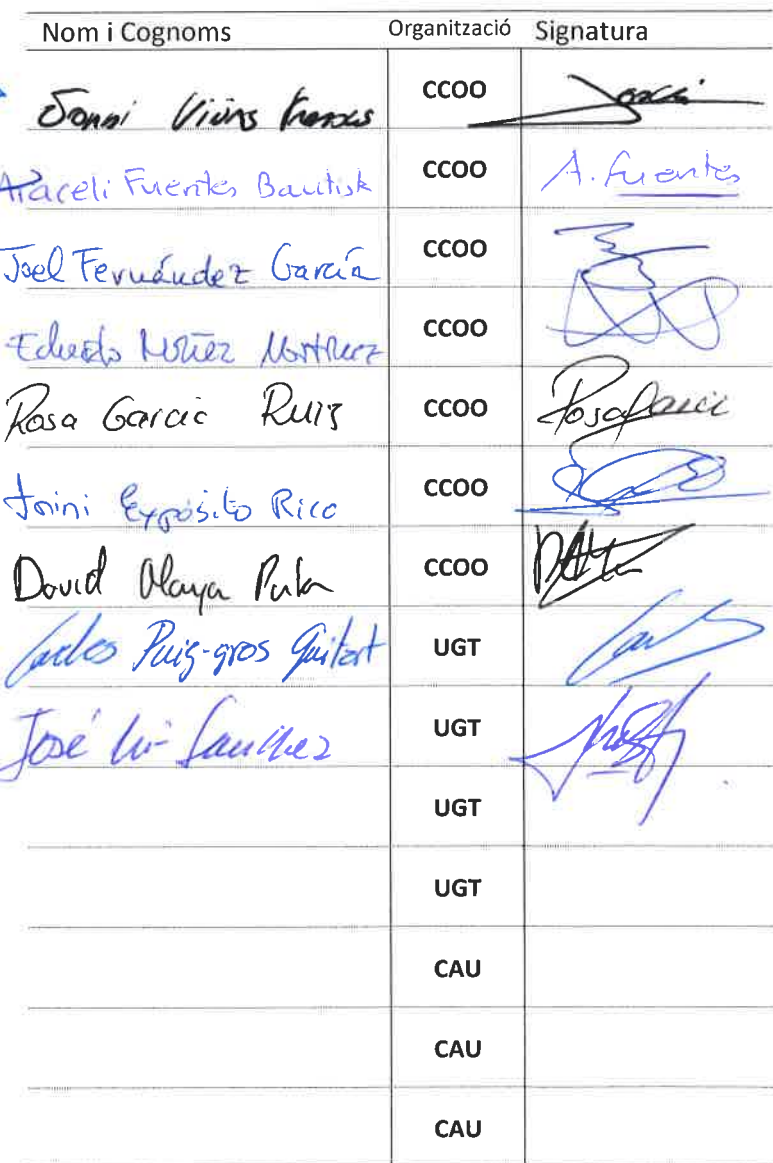 Nom i Cognoms Organització Signatura
CCOO
Araceli Fuentes Bautista CCOO A. Fuentes
Joel Fernández García CCOO
Eduardo Núñez Martínez CCOO
Rosa Garcia Ruiz CCOO Rosa Garcia
Expósito Rico CCOO
David Olaya CCOO
Carles Puig-gros Guitart UGT
José Sanchez UGT
UGT
UGT
CAU
CAU
CAU